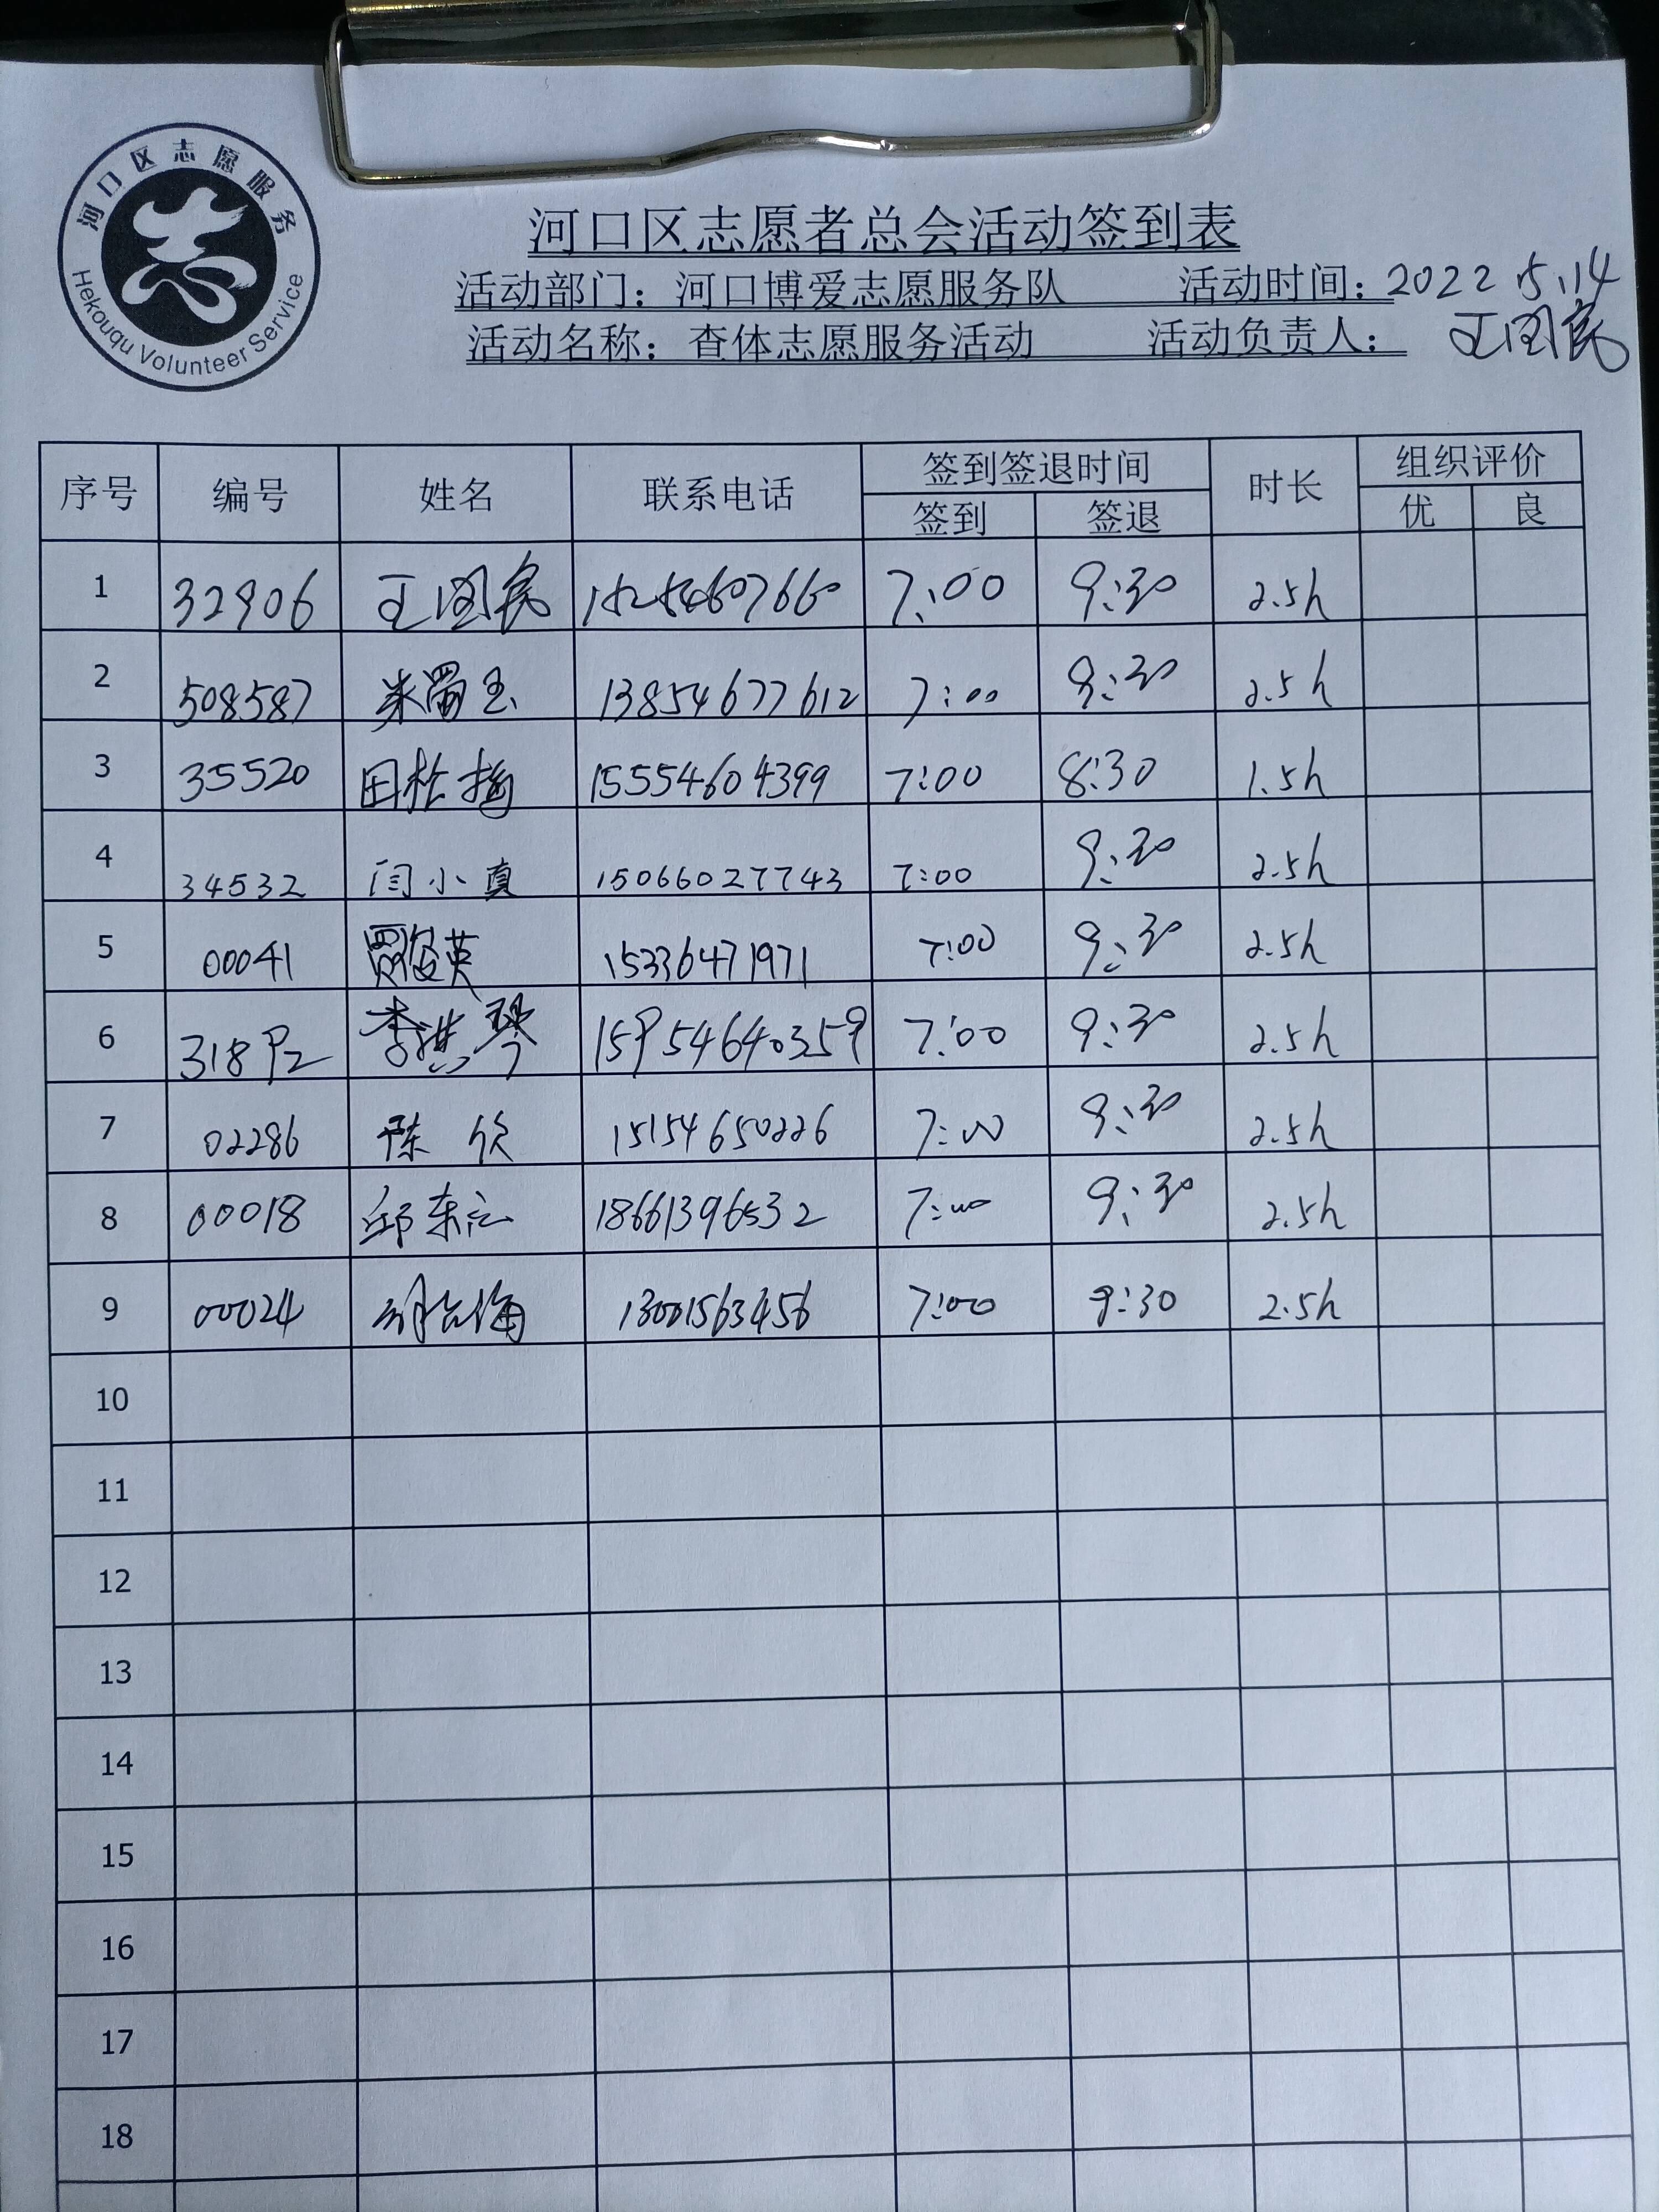 河口区志愿服务
Hekouqu Volunteer Service
河口区志愿者总会活动签到表
活动部门：河口博爱志愿服务队 活动时间：2022.5.14
活动名称：查体志愿服务活动 活动负责人： 王国民
序号 编号 姓名 联系电话 签到签退时间 时长 组织评价
签到 签退 优 良
1 32906 王国民 15254607660 7:00 9:30 2.5h
2 508587 13854677612 7:00 9:30 2.5h
3 35520 田 15554604399 7:00 8:30 1.5h
4 34532 闫小真 15066027743 7:00 9:30 2.5h
5 00041 贾俊英 15336471971 7:00 9:30 2.5h
6 31892 李洪琴 15954640359 7:00 9:30 2.5h
7 02286 陈欣 15154650226 7:00 9:30 2.5h
8 00018 邱东 18661396532 7:00 9:30 2.5h
9 00024 13001563456 7:00 9:30 2.5h
10
11
12
13
14
15
16
17
18